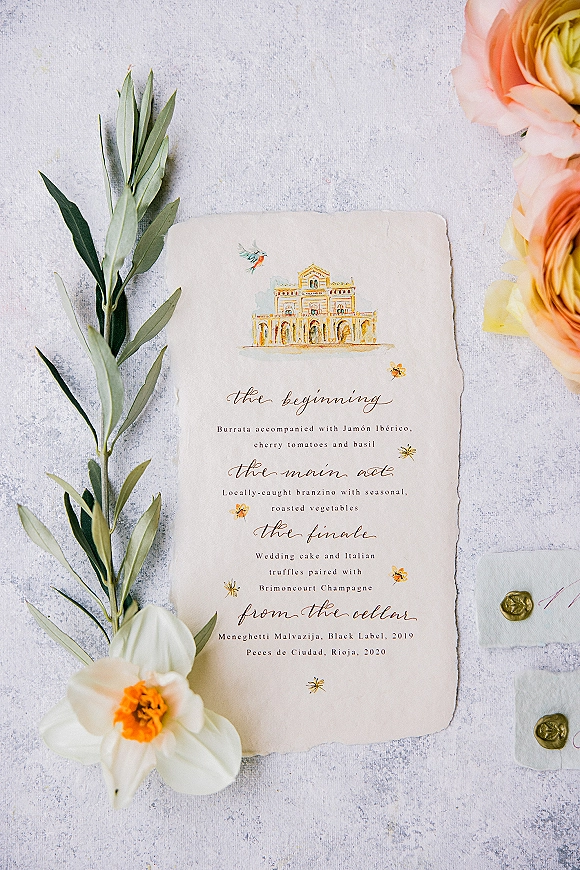 the beginning
Burrata accompanied with Jamón Ibérico,
cherry tomatoes and basil
the main act
Locally-caught branzino with seasonal,
roasted vegetables
the finale
Wedding cake and Italian
truffles paired with
Brimoncourt Champagne
from the cellar
Meneghetti Malvazija, Black Label, 2019
Peces de Ciudad, Rioja, 2020